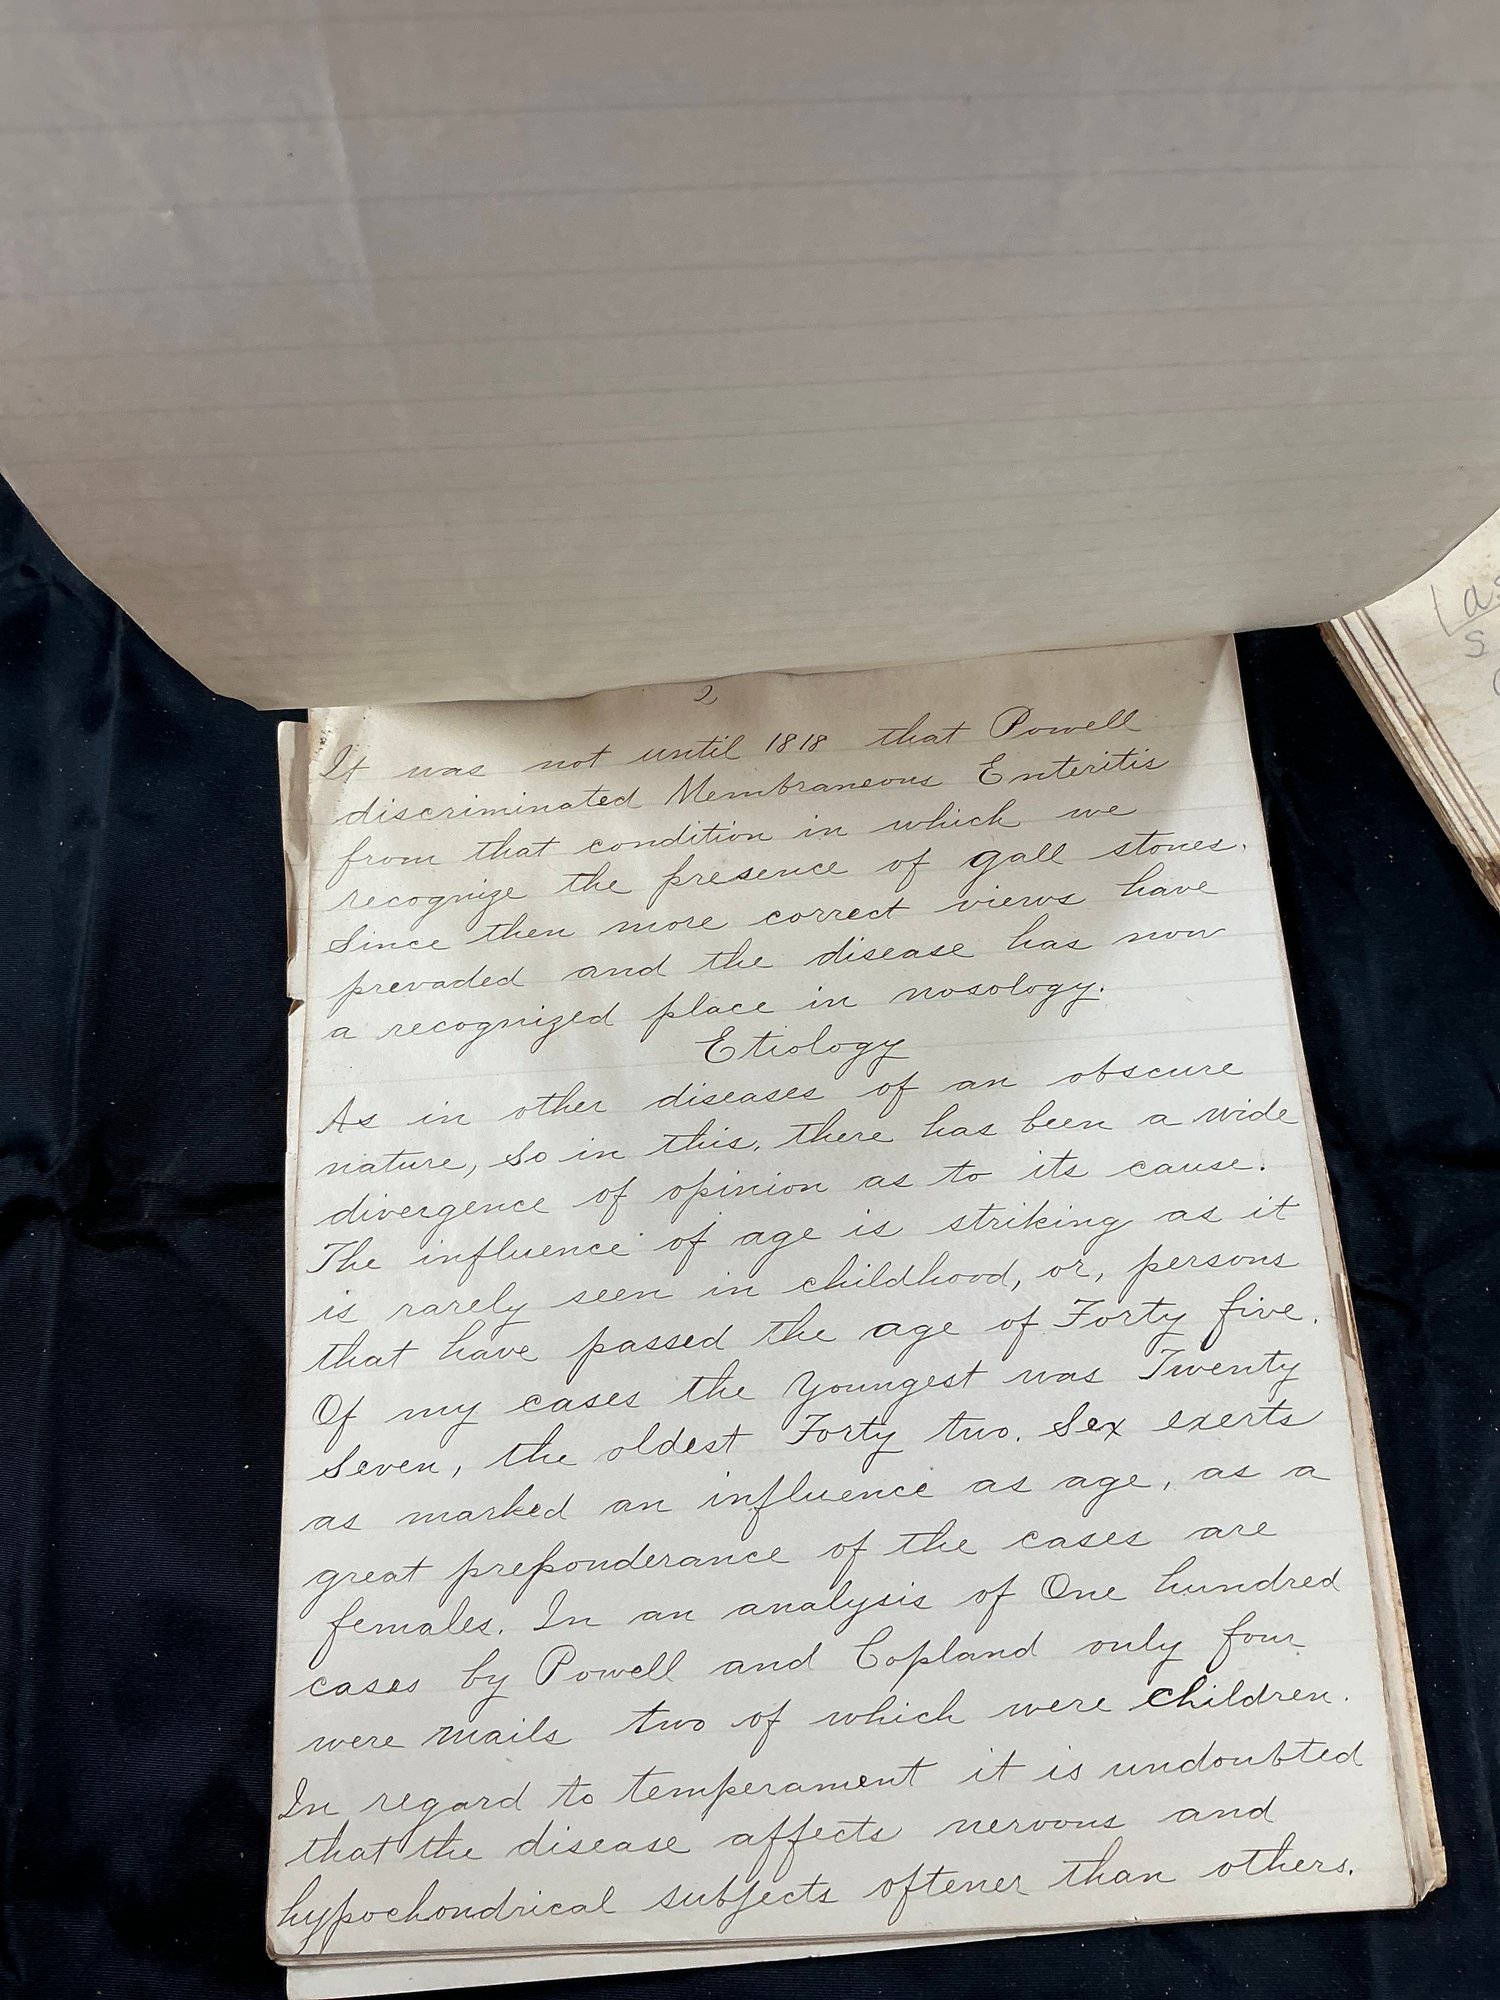 2
It was not until 1818 that Powell
discriminated Membraneous Enteritis
from that condition in which we
recognize the presence of gall stones.
Since then more correct views have
prevaded and the disease has now
a recognized place in nosology.
Etiology
As in other diseases of an obscure
nature, so in this, there has been a wide
divergence of opinion as to its cause.
The influence of age is striking as it
is rarely seen in childhood, or, persons
that have passed the age of Forty five.
Of my cases the Youngest was Twenty
Seven, the oldest Forty two. Sex exerts
as marked an influence as age, as a
great preponderance of the cases are
females. In an analysis of One hundred
cases by Powell and Copland only four
were mails two of which were children.
In regard to temperament it is undoubted
that the disease affects nervous and
hypochondrical subjects oftener than others.